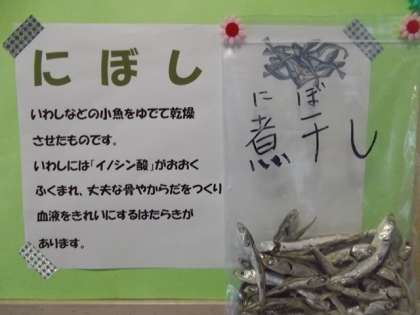 にぼし
いわしなどの小魚をゆでて乾燥
させたものです。
いわしには「イノシン酸」がおおく
ふくまれ、丈夫な骨やからだをつくり
血液をきれいにするはたらきが
あります。
にぼ
煮干し